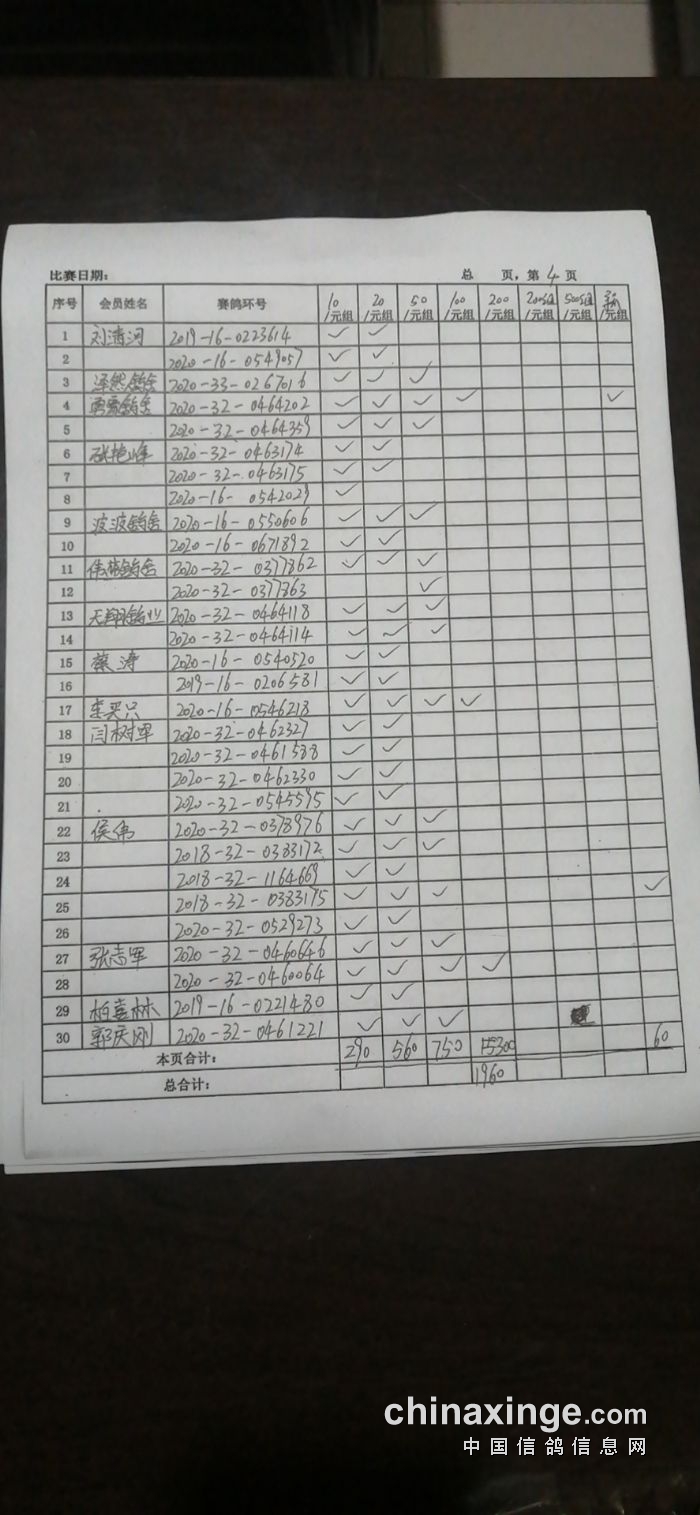 比赛日期: 总 页,第 4 页
序号 会员姓名 赛鸽环号 10/元组 20/元组 50/元组 100/元组 200/元组 200组/元组 500组/元组 /元组
1 刘清河 2019-16-0223614 ✓ ✓
2 2020-16-0549057 ✓ ✓
3 泽然鸽舍 2020-33-0267016 ✓ ✓ ✓
4 鸽舍 2020-32-0464202 ✓ ✓ ✓ ✓ ✓
5 2020-32-0464359 ✓ ✓ ✓
6 张艳峰 2020-32-0463174 ✓ ✓
7 2020-32-0463175 ✓ ✓
8 2020-16-0542029 ✓
9 波波鸽舍 2020-16-0550606 ✓ ✓ ✓
10 2020-16-0671892 ✓ ✓
11 鸽舍 2020-32-0377862 ✓ ✓ ✓
12 2020-32-0377863 ✓
13 天翔鸽业 2020-32-0464118 ✓ ✓ ✓
14 2020-32-0464114 ✓ ✓ ✓
15 蔡涛 2020-16-0540520 ✓ ✓
16 2019-16-0206581 ✓ ✓
17 李买只 2020-16-0546218 ✓ ✓ ✓ ✓
18 闫树军 2020-32-0462327 ✓ ✓
19 2020-32-0461588 ✓ ✓
20 2020-32-0462330 ✓ ✓
21 2020-32-0545595 ✓ ✓
22 侯伟 2020-32-0378976 ✓ ✓ ✓
23 2018-32-0383172 ✓ ✓ ✓
24 2018-32-1164669 ✓ ✓
25 2018-32-0383175 ✓ ✓ ✓ ✓
26 2020-32-0529273 ✓ ✓
27 张志军 2020-32-0460646 ✓ ✓ ✓
28 2020-32-0460064 ✓ ✓ ✓ ✓
29 柏喜林 2019-16-0221480 ✓ ✓
30 郭庆刚 2020-32-0461221 ✓ ✓ ✓
本页合计: 290 560 750 300 60
总合计: 1960
chinaxinge.com
中国信鸽信息网